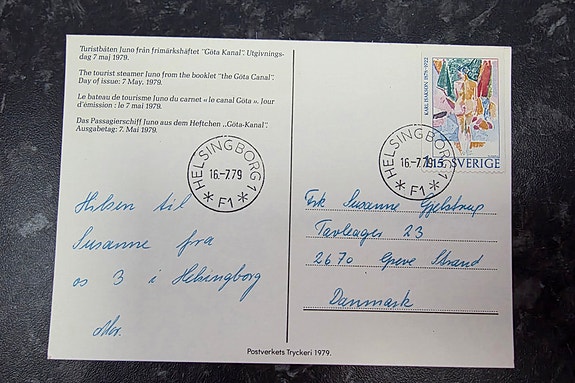 Turistbåten Juno från frimärkshäftet "Göta Kanal". Utgivnings-
dag 7 maj 1979.
The tourist steamer Juno from the booklet "the Göta Canal".
Day of issue: 7 May, 1979.
Le bateau de tourisme Juno du carnet « le canal Göta ». Jour
d'émission : le 7 mai 1979.
Das Passagierschiff Juno aus dem Heftchen „Göta-Kanal".
Ausgabetag: 7. Mai 1979.
HELSINGBORG 1
16.-7.79
F1
Hilsen til
Susanne fra
os 3 i Helsingborg
KARL ISAKSON 1878-1922
SVERIGE
HELSINGBORG 1
16.-7.79
F1
Frk Susanne Gjelstrup
Tavleager 23
2670 Greve Strand
Danmark
Postverkets Tryckeri 1979.